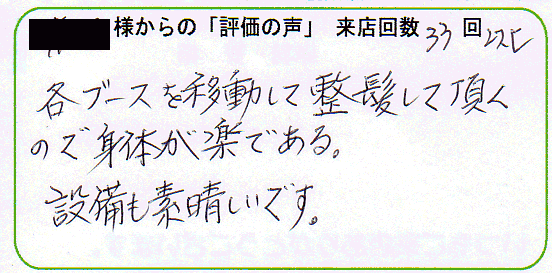 様からの「評価の声」 来店回数 33 回 以上
各ブースを移動して整髪して頂く
ので身体が楽である。
設備も素晴しいです。